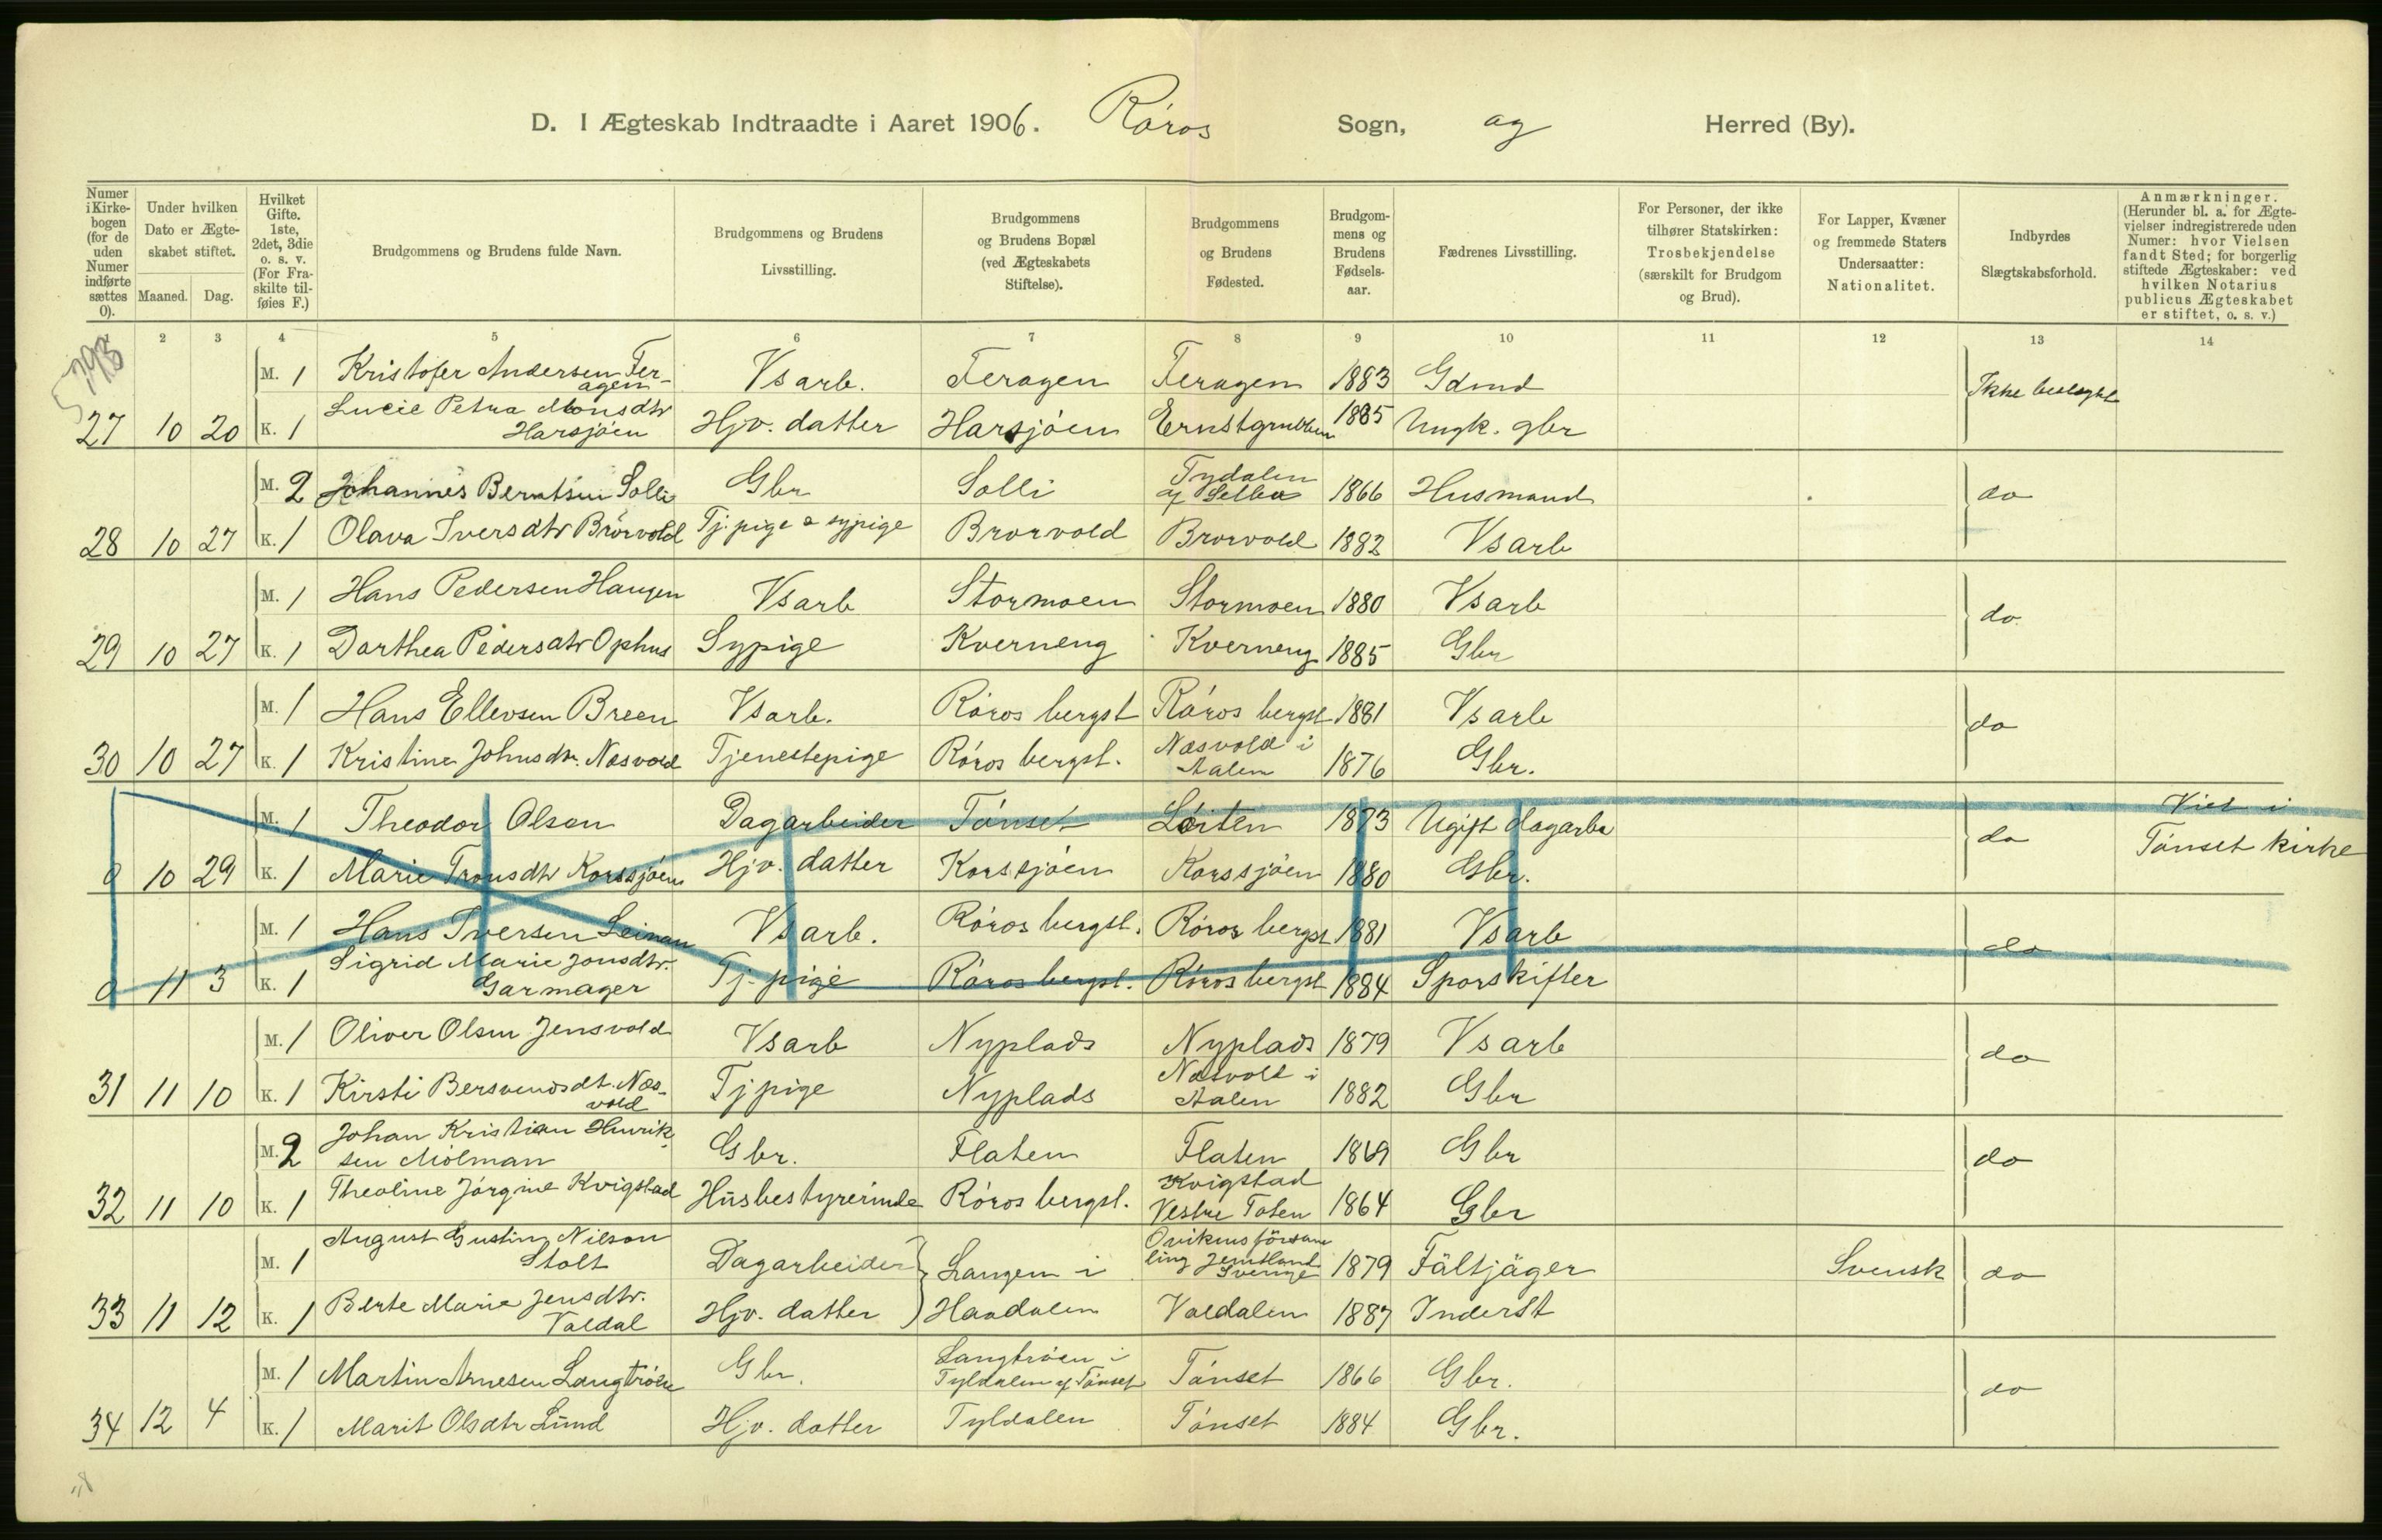 D. I Ægteskab Indtraadte i Aaret 1906. Röros Sogn, og Herred (By).
Numer i Kirkebogen (for de uden Numer indførte sættes 0). Under hvilken Dato er Ægteskabet stiftet. Maaned. Dag. Hvilket Gifte. 1ste, 2det, 3die o. s. v. (For Fraskilte tilføies F.) Brudgommens og Brudens fulde Navn. Brudgommens og Brudens Livsstilling. Brudgommens og Brudens Bopæl (ved Ægteskabets Stiftelse). Brudgommens og Brudens Fødested. Brudgommens og Brudens Fødselsaar. Fædrenes Livsstilling. For Personer, der ikke tilhører Statskirken: Trosbekjendelse (særskilt for Brudgom og Brud). For Lapper, Kvæner og fremmede Staters Undersaatter: Nationalitet. Indbyrdes Slægtskabsforhold. Anmærkninger. (Herunder bl. a. for Ægtevielser indregistrerede uden Numer: hvor Vielsen fandt Sted; for borgerlig stiftede Ægteskaber: ved hvilken Notarius publicus Ægteskabet er stiftet, o. s. v.)
1 2 3 4 5 6 7 8 9 10 11 12 13 14
M. 1 Kristofer Andersen Feragen Vsarb. Feragen Feragen 1883 Gdmd Ikke beslægt
27 10 20 K. 1 Lucie Petra Monsdtr Harsjöen Hjv. datter Harsjöen Ernstgruben 1885 Ungk. gbr
M. 2 Johannes Berntsen Solli Gbr Solli Tydalen af Selbu 1866 Husmand do
28 10 27 K. 1 Olava Iversdtr Brörvold Tj. pige & sypige Brorvold Brorvold 1882 Vsarb
M. 1 Hans Pedersen Haugen Vsarb Stormoen Stormoen 1880 Vsarb do
29 10 27 K. 1 Dorthea Pedersdtr Ophus Sypige Kverneng Kverneng 1885 Gbr
M. 1 Hans Ellevsen Breen Vsarb. Röros bergst Röros bergst 1881 Vsarb do
30 10 27 K. 1 Kristine Johnsdtr. Næsvold Tjenestepige Röros bergst. Næsvold i Aalen 1876 Gbr.
M. 1 Theodor Olsen Dagarbeider Tönset Löiten 1873 Ugift dagarb do Viet i
0 10 29 K. 1 Marie Tronsdtr Korssjöen Hjv. datter Korssjöen Korssjöen 1880 Gbr. Tönset kirke
M. 1 Hans Iversen Leinan Vsarb. Röros bergst. Röros bergst 1881 Vsarb do
0 11 3 K. 1 Sigrid Marie Jonsdtr. Garmager Tj. pige Röros bergst. Röros bergst 1884 Sporskifter
M. 1 Oliver Olsen Jensvold Vsarb Nyplads Nyplads 1879 Vsarb do
31 11 10 K. 1 Kirsti Bersvendsdt. Næsvold Tj pige Nyplads Næsvold i Aalen 1882 Gbr
M. 2 Johan Kristian Henriksen Mölman Gbr. Flaten Flaten 1869 Gbr do
32 11 10 K. 1 Theoline Jörgine Kvigstad Husbestyrerinde Röros bergst. Kvigstad Vestre Toten 1864 Gbr
M. 1 August Gustin Nilson Stolt Dagarbeider Langen i Ovikens församling Jemtland Sverige 1879 Fältjäger Svensk do
33 11 12 K. 1 Berte Marie Jensdtr. Valdal Hjv. datter Haadalen Valdalen 1887 Inderst
M. 1 Martin Arnesen Langtröen Gbr. Langtröen i Tyldalen af Tönset Tönset 1866 Gbr. do
34 12 4 K. 1 Marit Olsdtr Lund Hjv. datter Tyldalen Tönset 1884 Gbr.